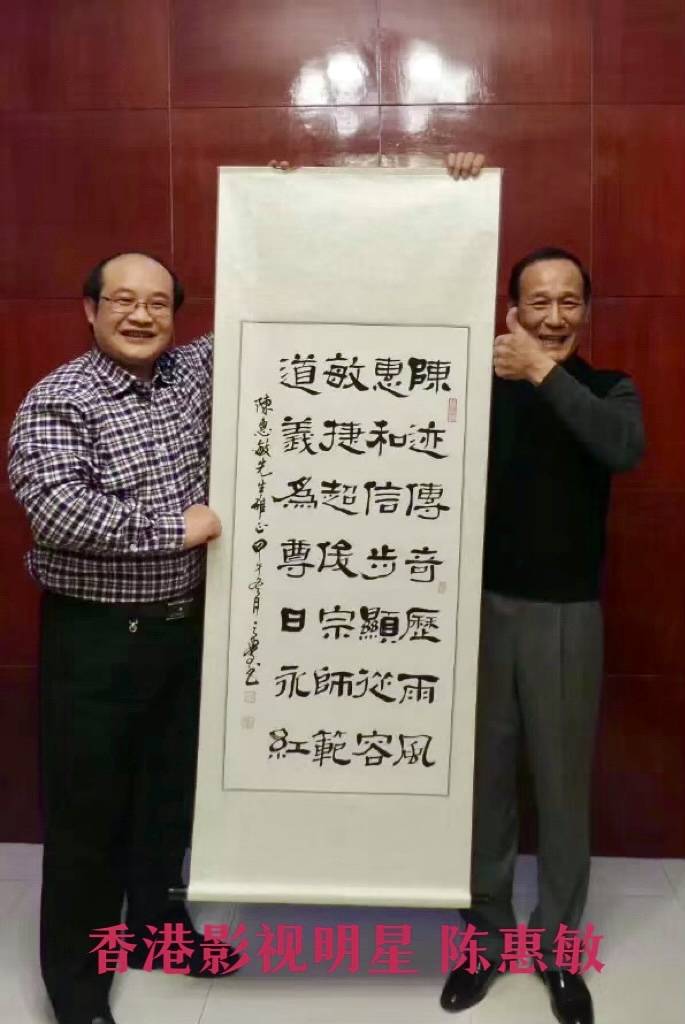 陳迹傳奇歷雨風
惠和信步顯從容
敏捷超俊宗師範
道義為尊日永紅
陳惠敏先生雅正 甲午
香港影视明星 陈惠敏